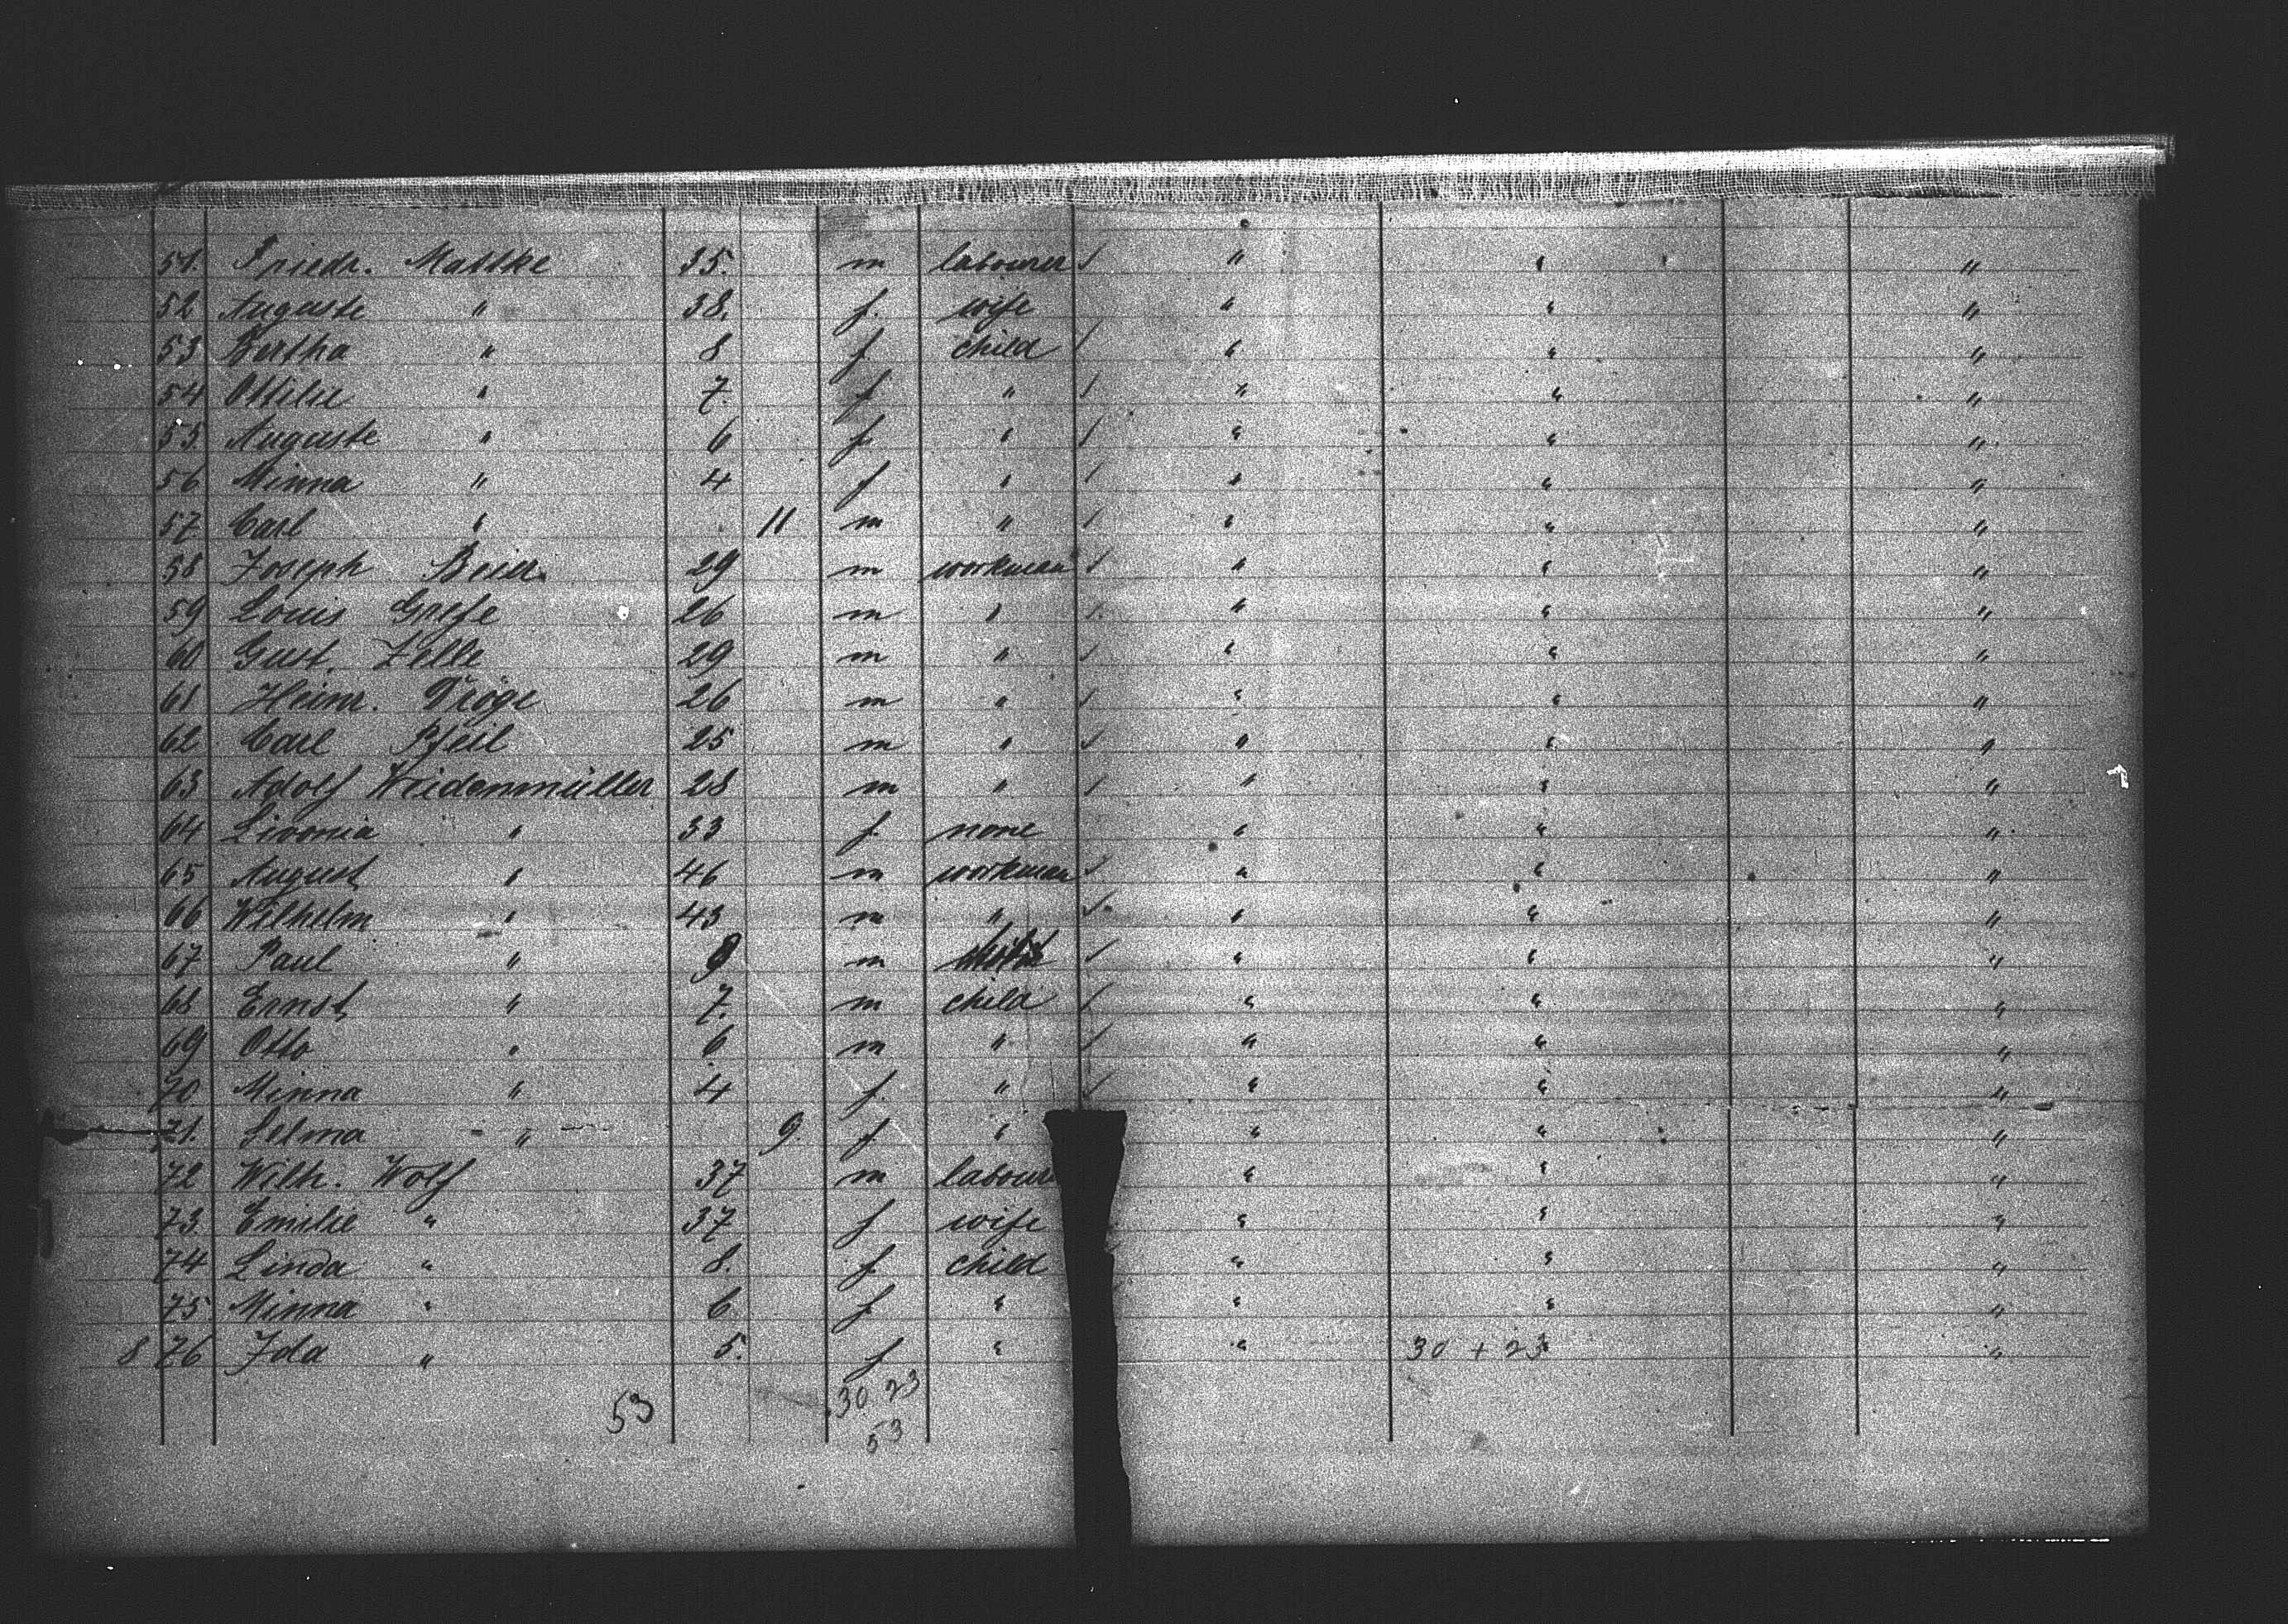 51. Friedr. Mattke 35. m labourer " " "
52 Auguste " 38. f. wife " " "
53 Bertha " 8 f child " " "
54 Ottilie " 7. f " " " "
55. Auguste " 6 f " " " "
56 Minna " 4 f " " " "
57. Carl " 11 m " " " "
58 Joseph Beier 29 m workman " " "
59 Louis Grefe 26 m " " " "
60 Gust. Zelle 29 m " " " "
61 Heinr. Tröge 26 m " " " "
62 Carl Pfeil 25 m " " " "
63 Adolf Weidenmüller 28 m " " " "
64 Livonia " 33 f. none " " "
65 August " 46 m workman " " "
66 Wilhelm " 43 m " " " "
67 Paul " 9 m " " "
68 Ernst " 7. m child " " "
69 Otto " 6 m " " " "
70. Minna " 4 f. " " " "
71. Selma " 9. f. " " " "
72 Wilh. Wolf 37 m laboure " " "
73. Emilie " 37 f wife " " "
74 Linda " 8. f child " " "
75 Minna " 6 f " " " "
8 76 Ida " 5. f " " 30 + 23 "
53 30. 23
53